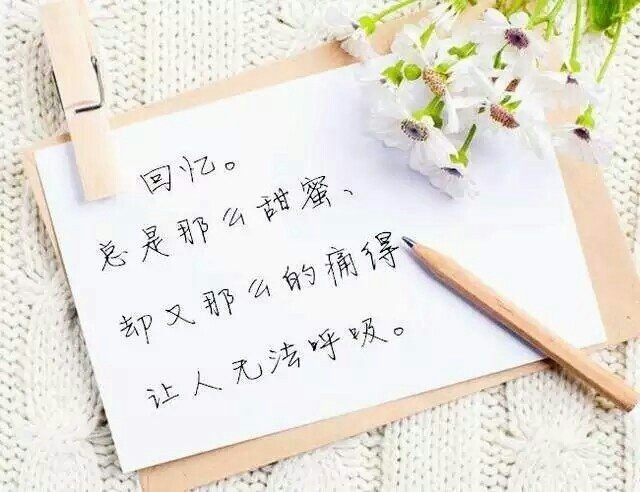 回忆。
总是那么甜蜜、
却又那么的痛得
让人无法呼吸。